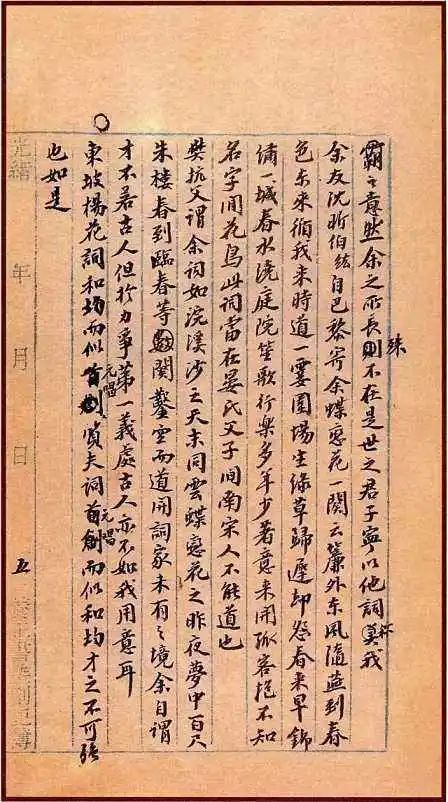 霸之意然余之所長殊不在是世之君子寧以他詞稱我
余友沈昕伯紘自巴黎寄余蝶戀花一闋云簾外東風隨燕到春
色東來循我來時道一霎圍場生綠草歸遲却怨春來早錦
繡一城春水遶庭院笙歌行樂多年少著意來開孤客抱不知
名字閒花鳥此詞當在晏氏父子間南宋人不能道也
樊抗父謂余詞如浣溪沙之天末同雲蝶戀花之昨夜夢中百尺
朱樓春到臨春等闋鑿空而道開詞家未有之境余自謂
才不若古人但於力爭第一義處古人亦不如我用意耳
東坡楊花詞和均而似元唱質夫詞元唱而似和均才之不可強
也如是
光緒 年 月 日 五